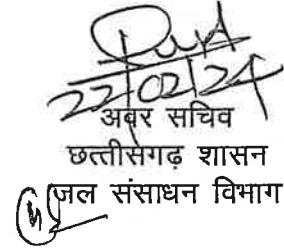 22/02/24
अवर सचिव
छत्तीसगढ़ शासन
जल संसाधन विभाग